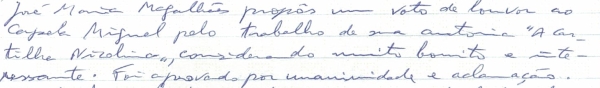 José Maria Magalhães propôs um voto de louvor ao
Capela Miguel pelo trabalho de sua autoria "A Car-
tilha Nicolina", considerando muito bonito e inte-
ressante. Foi aprovado por unanimidade e aclamação.